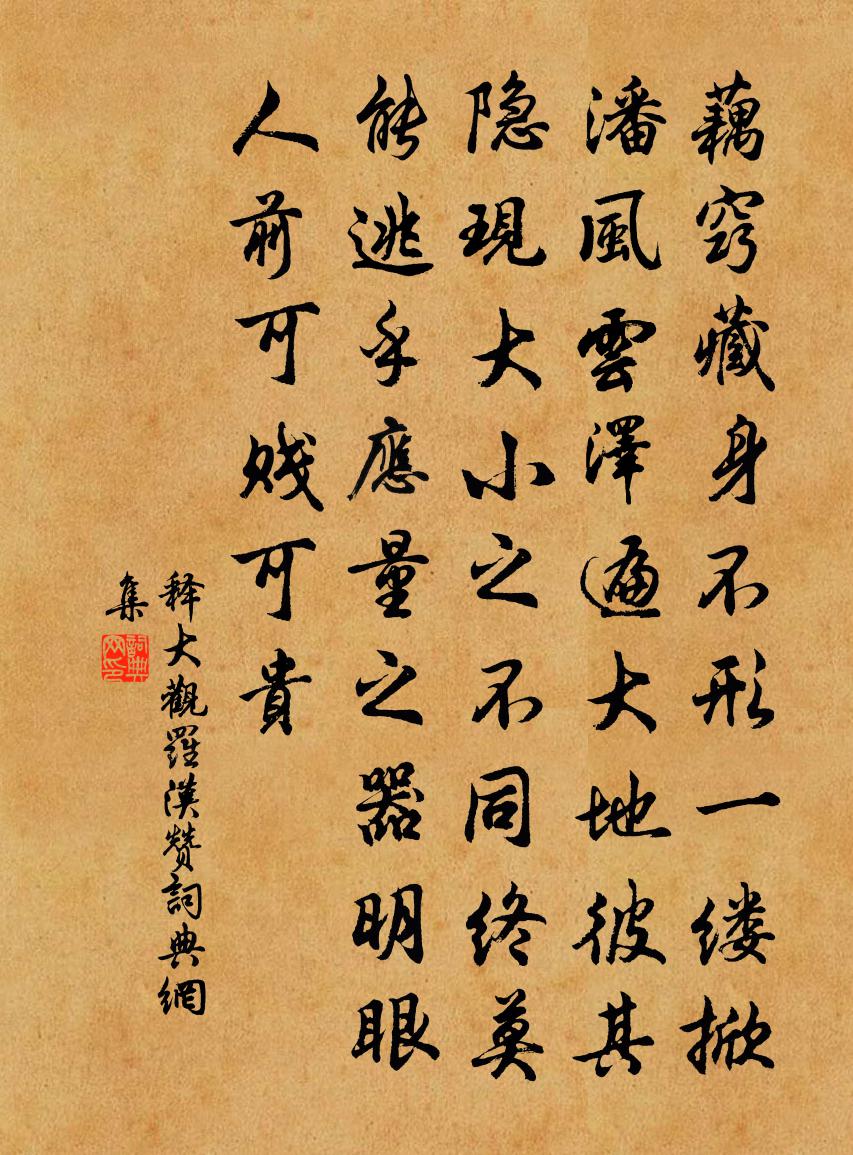 藕窍藏身不形一缕掀
潘風雲澤遍大地彼其
隐現大小之不同终莫
能逃乎應量之器明眼
人前可贱可貴
释大觀羅漢赞詞典網
集
詞典網印